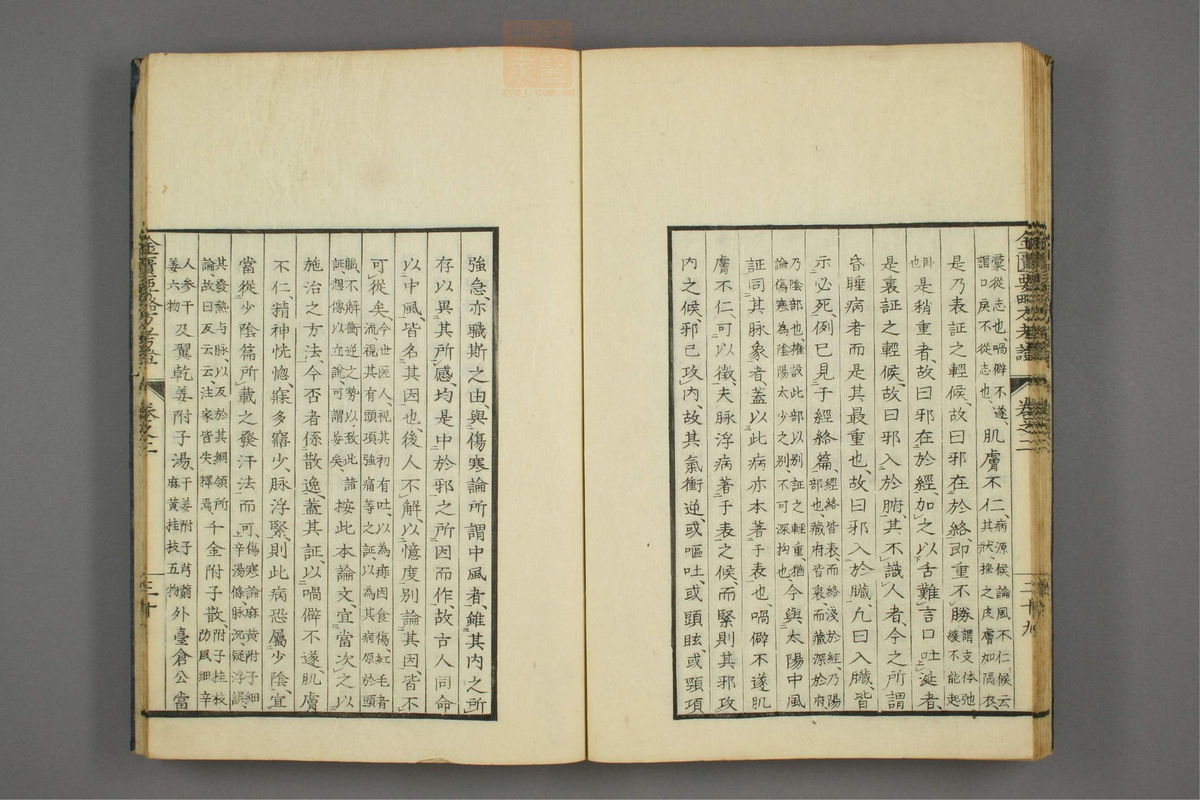 橐從志也、喎僻不遂、肌膚不仁、病源候論風不仁候云
謂口戾不從志也、其狀、搔之皮膚如隔衣、
是乃表証之輕候、故曰邪在於絡、即重不勝、謂支体弛緩不能起
臥也是稍重者、故曰邪在於經、加之以舌難言口吐涎者、
是裏証之輕候、故曰邪入於腑、其不識人者、今之所謂
昏睡病者而是其最重也、故曰邪入於臟、凡曰入臟、皆
示必死、例已見于經絡篇、經絡皆表而絡淺於經、乃陽部也、臟府皆裏而臟深於府
乃陰部也、權設此部以別証之輕重、猶論傷寒為陰陽太少之別、不可深拘也、今與太陽中風
証同其脉象者、蓋以此病亦本著于表也、喎僻不遂肌
膚不仁、可以徵、夫脉浮病著于表之候、而緊則其邪攻
內之候、邪已攻內、故其氣衝逆、或嘔吐、或頭眩、或頸項
金匱要略方考證 卷之二 二十九
強急、亦職斯之由、與傷寒論所謂中風者、雖其內之所
存以異其所感、均是中於邪之所因而作、故古人同命
以中風、皆名其因也、後人不解、以憶度別論其因、皆不
可從矣、今世医人、視其初有吐、以為痱因食傷、紅毛者流、視其有頭項強痛等之証、以為其病原於頭
腦、不解衝逆之勢以致此諸証、想像以立說、可謂妄矣、按此本論文、宜當次之以
施治之方法、今否者係散逸、蓋其証、以喎僻不遂、肌膚
不仁、精神恍惚、寐多寤少、脉浮緊、則此病恐屬少陰、宜
當從少陰篇所載之發汗法而可、傷寒論麻黃附子細辛湯條、脉沉疑浮誤、
其發熱与脉、以反於其綱領所論、故曰反云云、注家皆失釋焉、千金附子散、附子桂枝防風細辛
人参干姜六物及翼乾姜附子湯、干姜附子芎藭麻黃桂枝五物外臺倉公當
金匱要略方考證 卷之二 三十